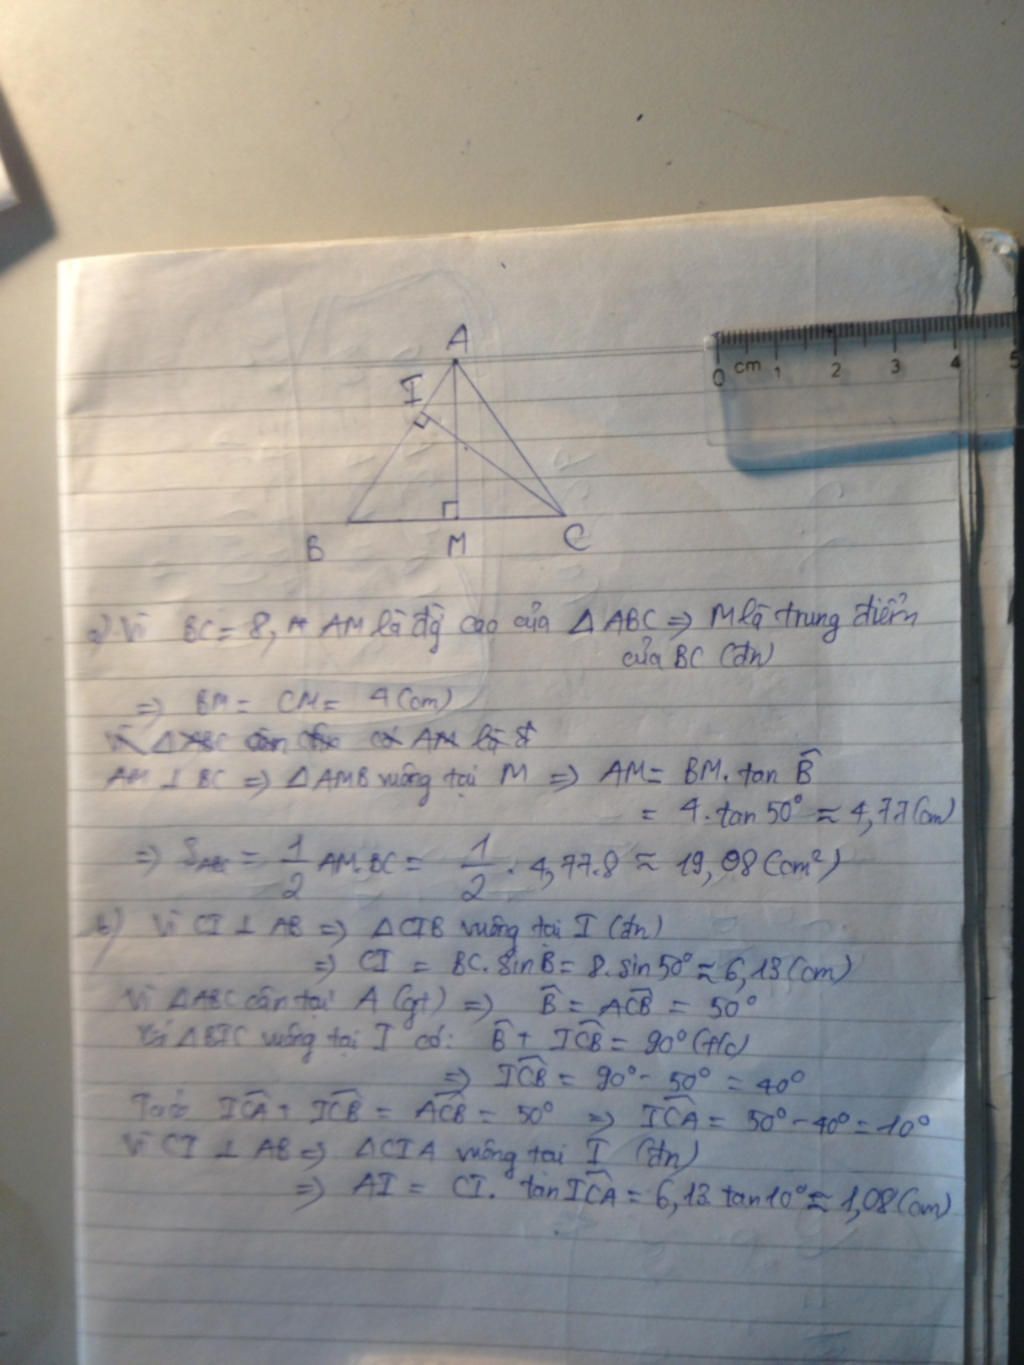 A
I
B
M
C
0 cm 1 2 3 4 5
a) Vì BC = 8, AM là độ cao của △ABC => M là trung điểm
của BC (đn)
=> BM = CM = 4 (cm)
AM ⊥ BC => △AMB vuông tại M => AM = BM. tan B̂
= 4. tan 50° ≈ 4,77 (cm)
=> S_ABC = 1/2 AM.BC = 1/2 . 4,77.8 ≈ 19,08 (cm²)
b) Vì CI ⊥ AB => △CIB vuông tại I (đn)
=> CI = BC. sin B̂ = 8. sin 50° ≈ 6,13 (cm)
Vì △ABC cân tại A (gt) => B̂ = AĈB = 50°
Xét △BIC vuông tại I có: B̂ + IĈB = 90° (t/c)
=> IĈB = 90° - 50° = 40°
Ta có IĈA + IĈB = AĈB = 50° => IĈA = 50° - 40° = 10°
Vì CI ⊥ AB => △CIA vuông tại I (đn)
=> AI = CI. tan IĈA = 6,13 tan 10° ≈ 1,08 (cm)